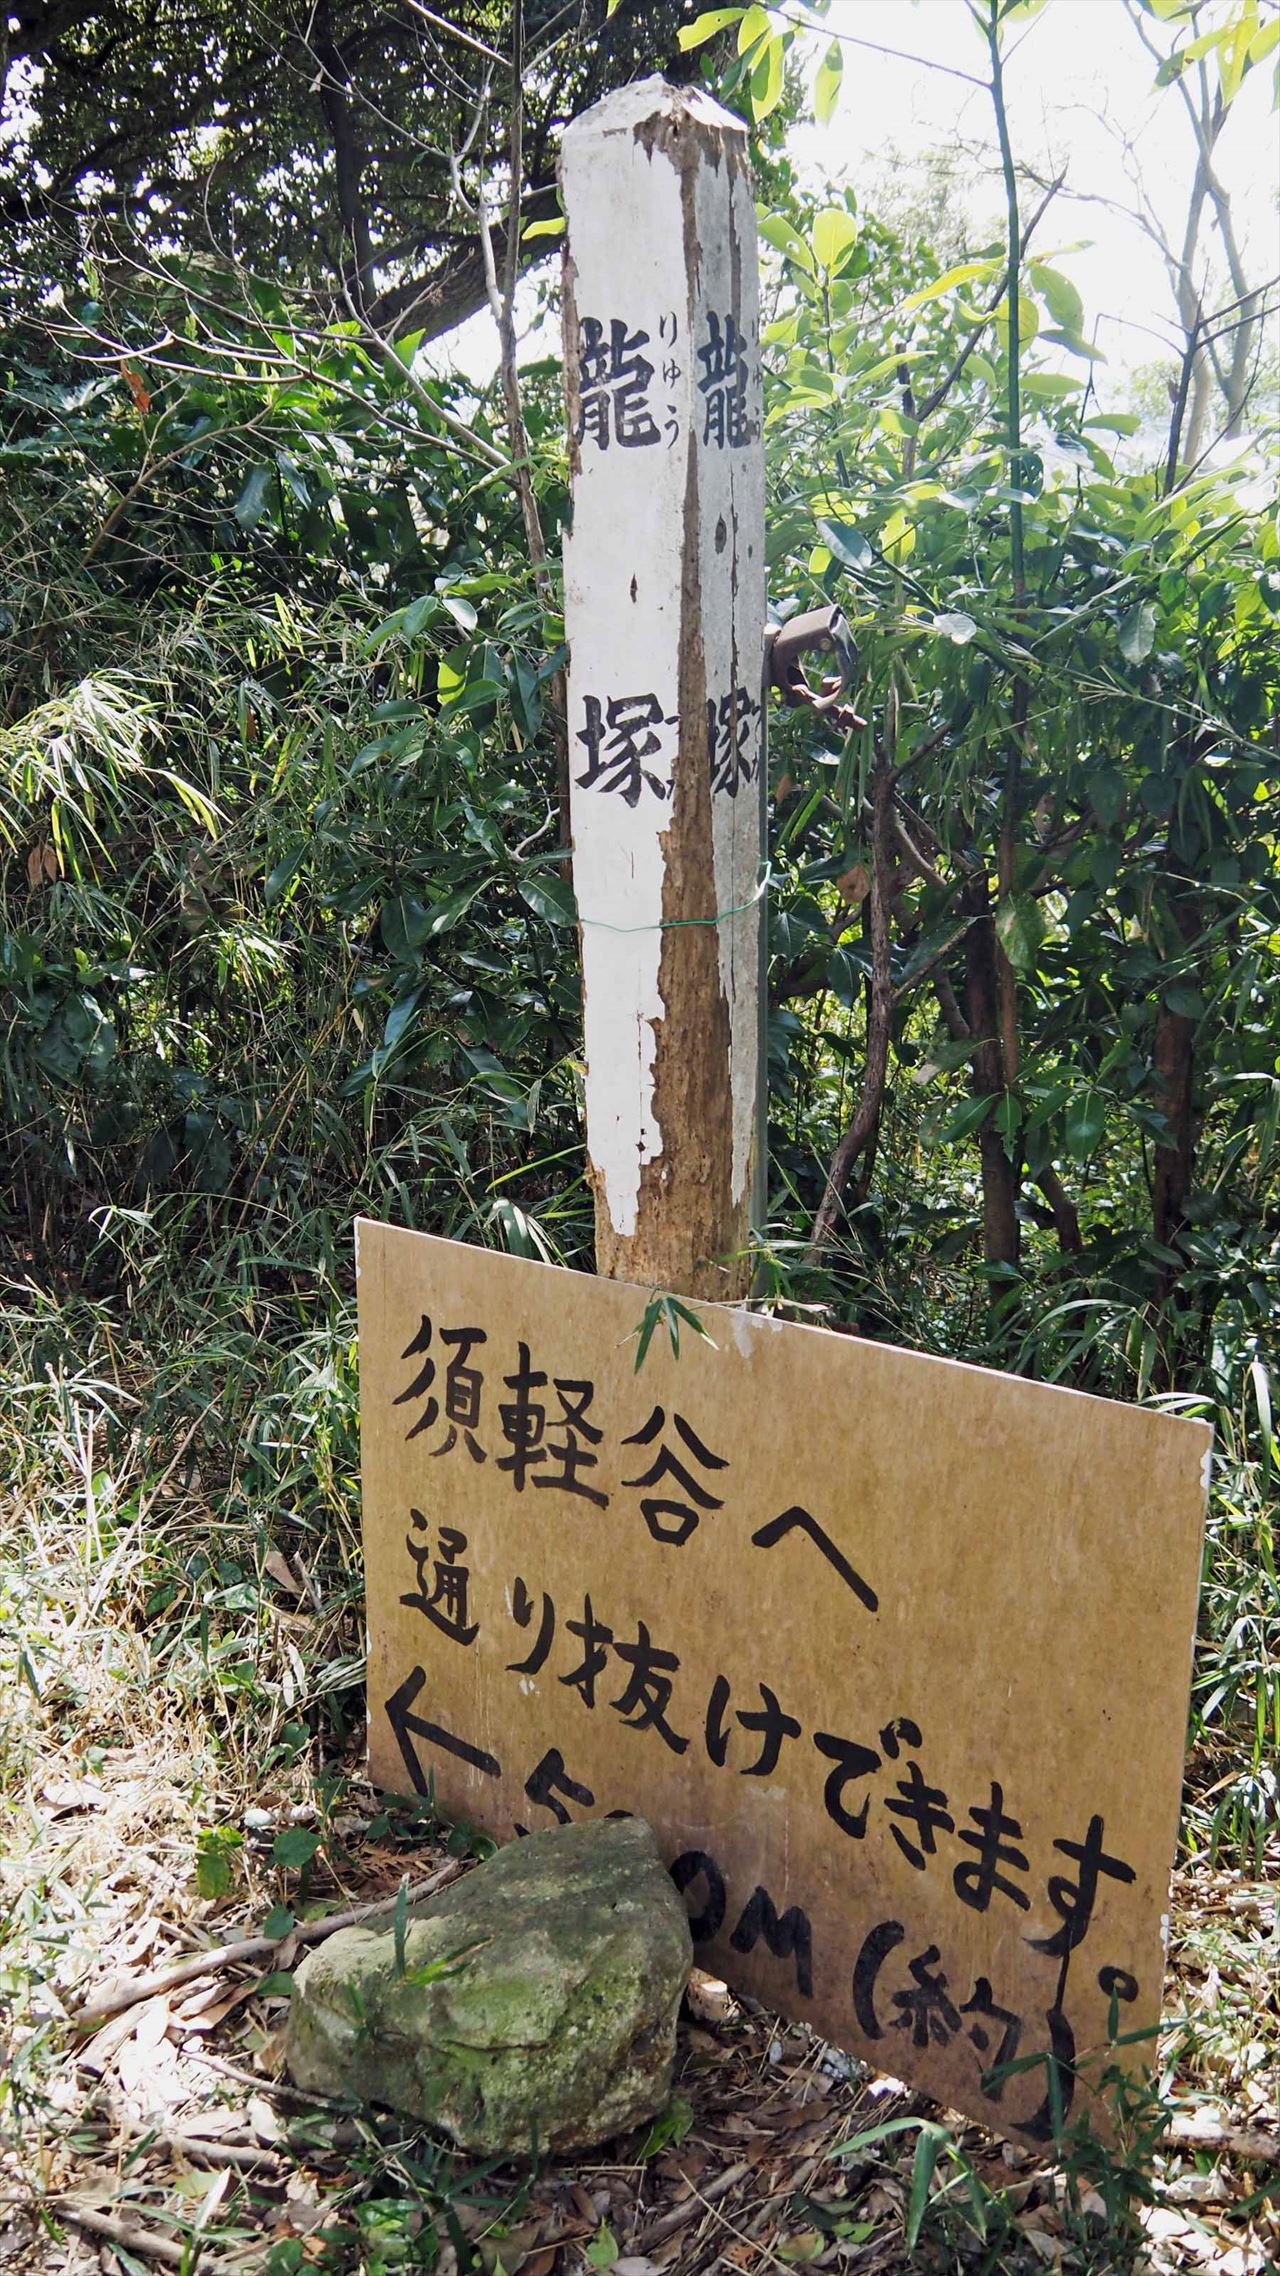 龍塚
りゅう
龍塚
須軽谷へ
通り抜けできます。
← 0M (約)